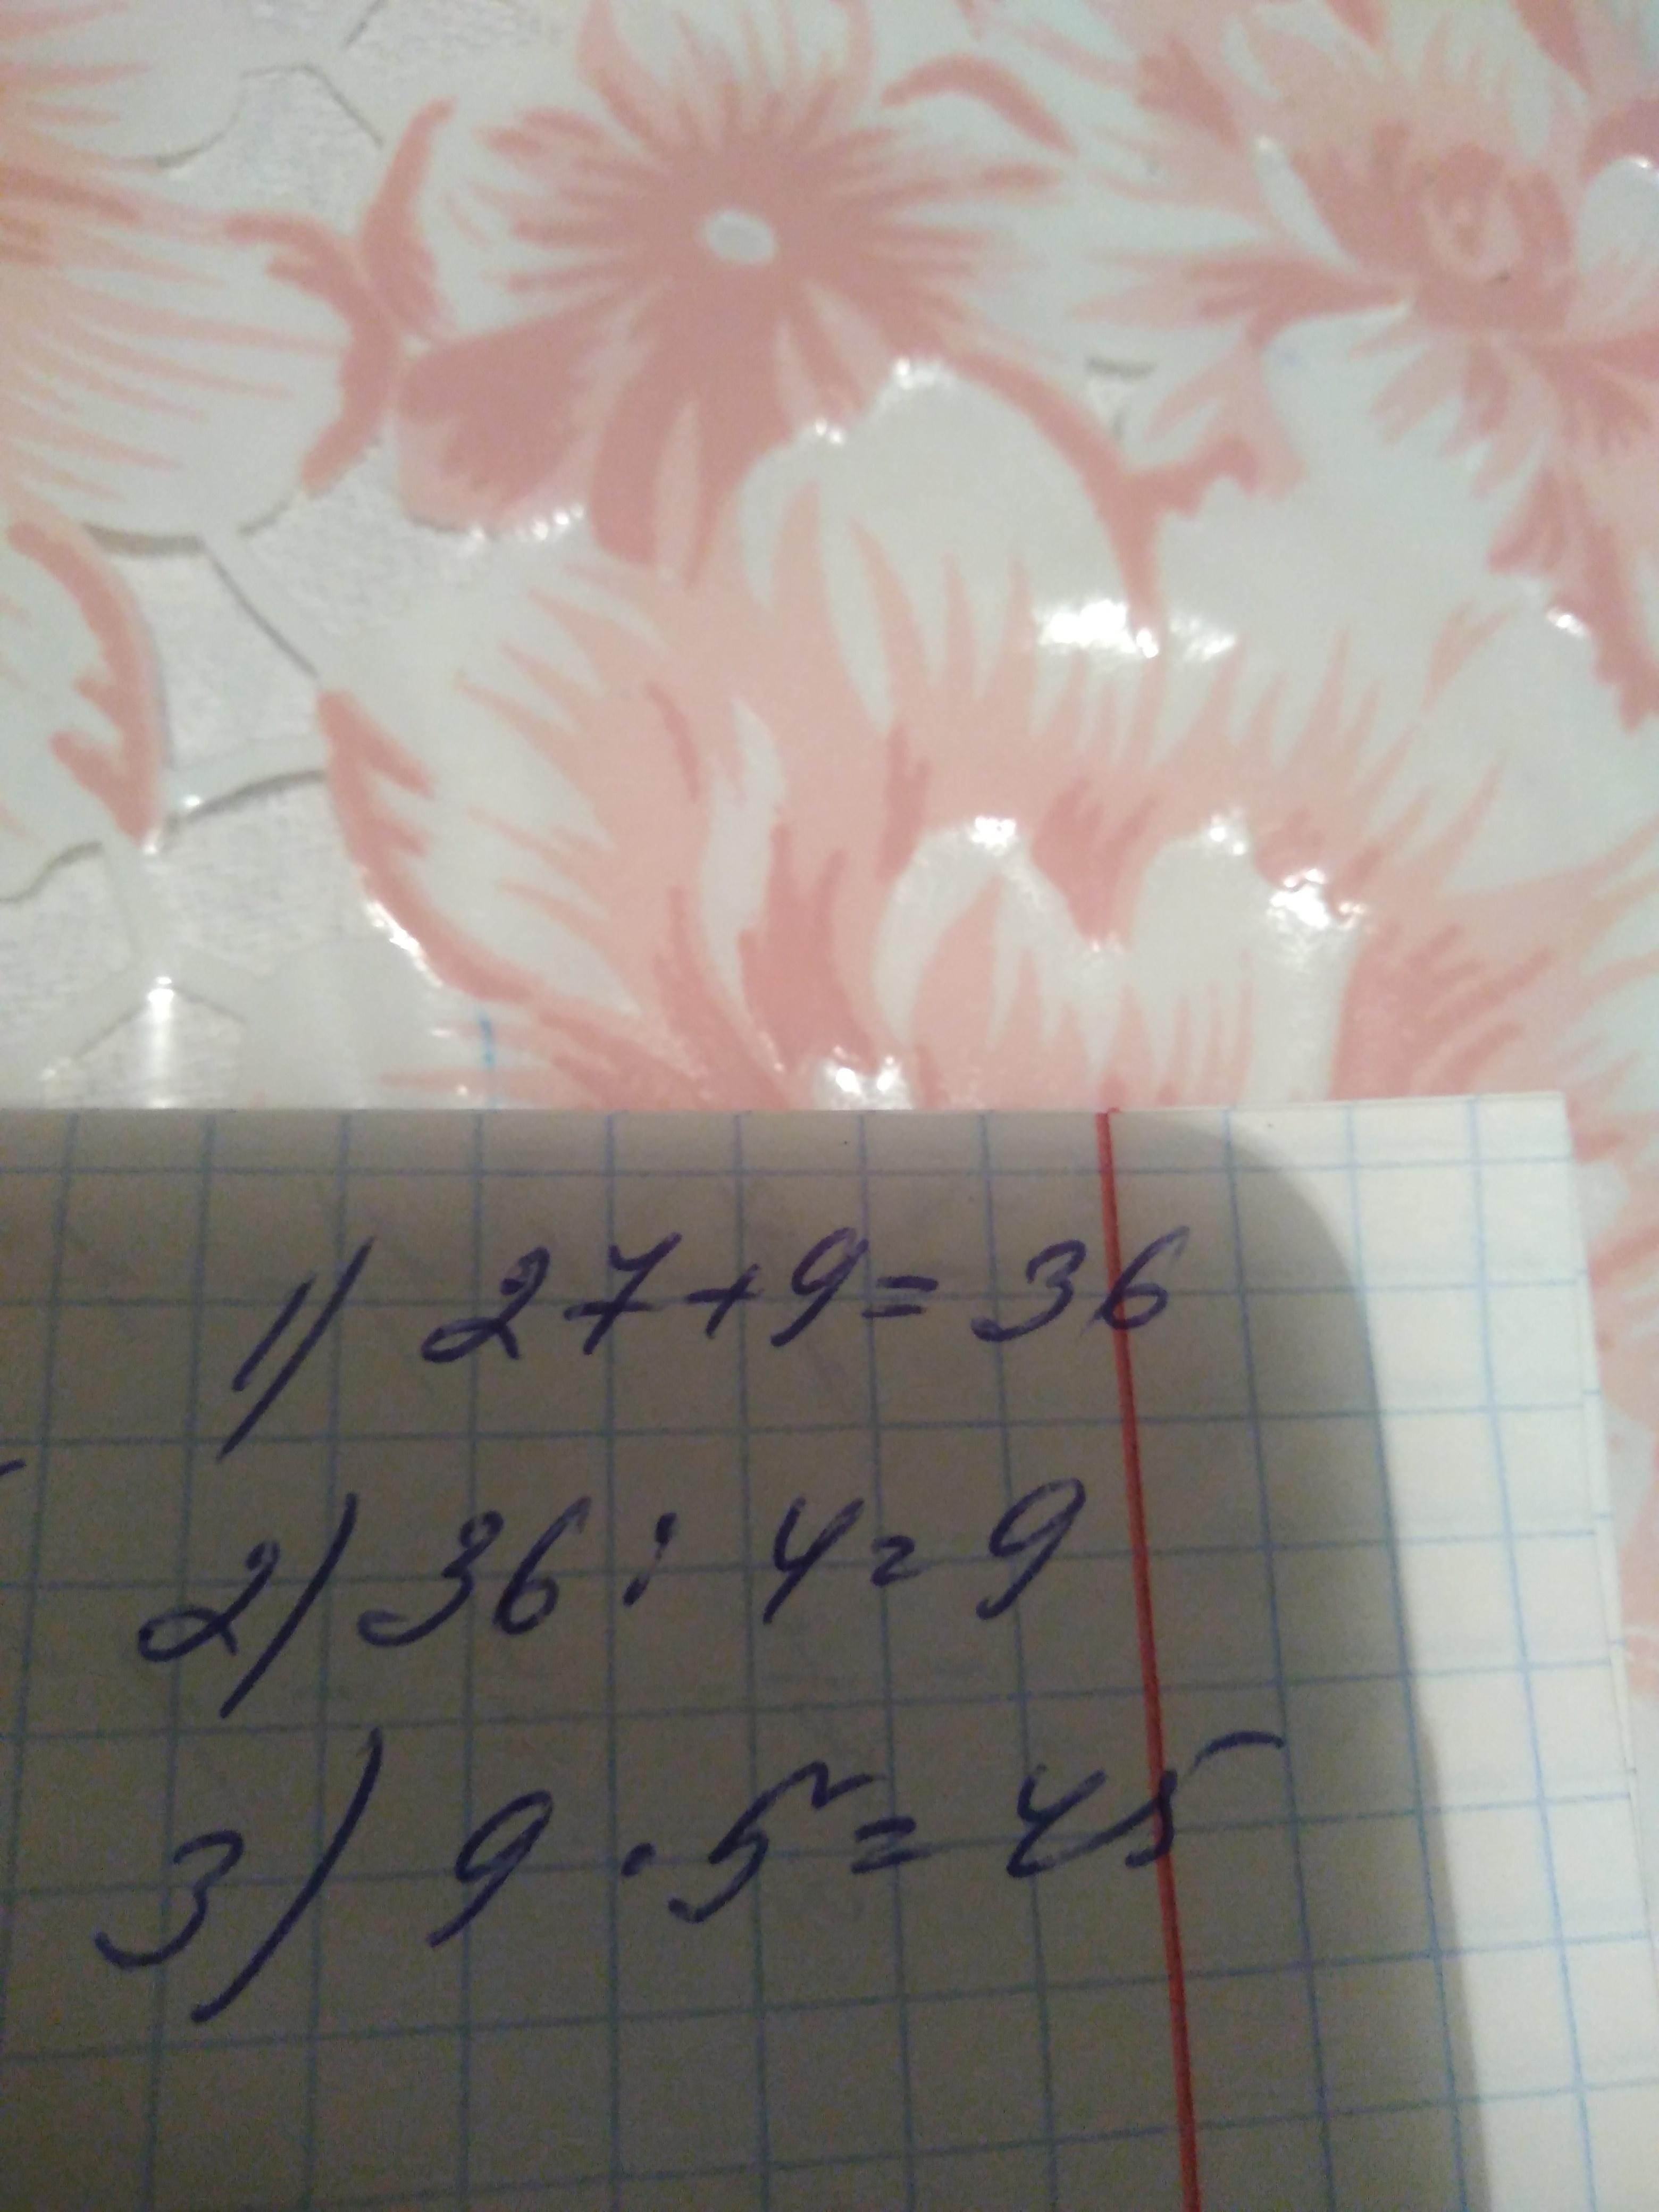 1) 27+9=36
2) 36:4=9
3) 9·5=45